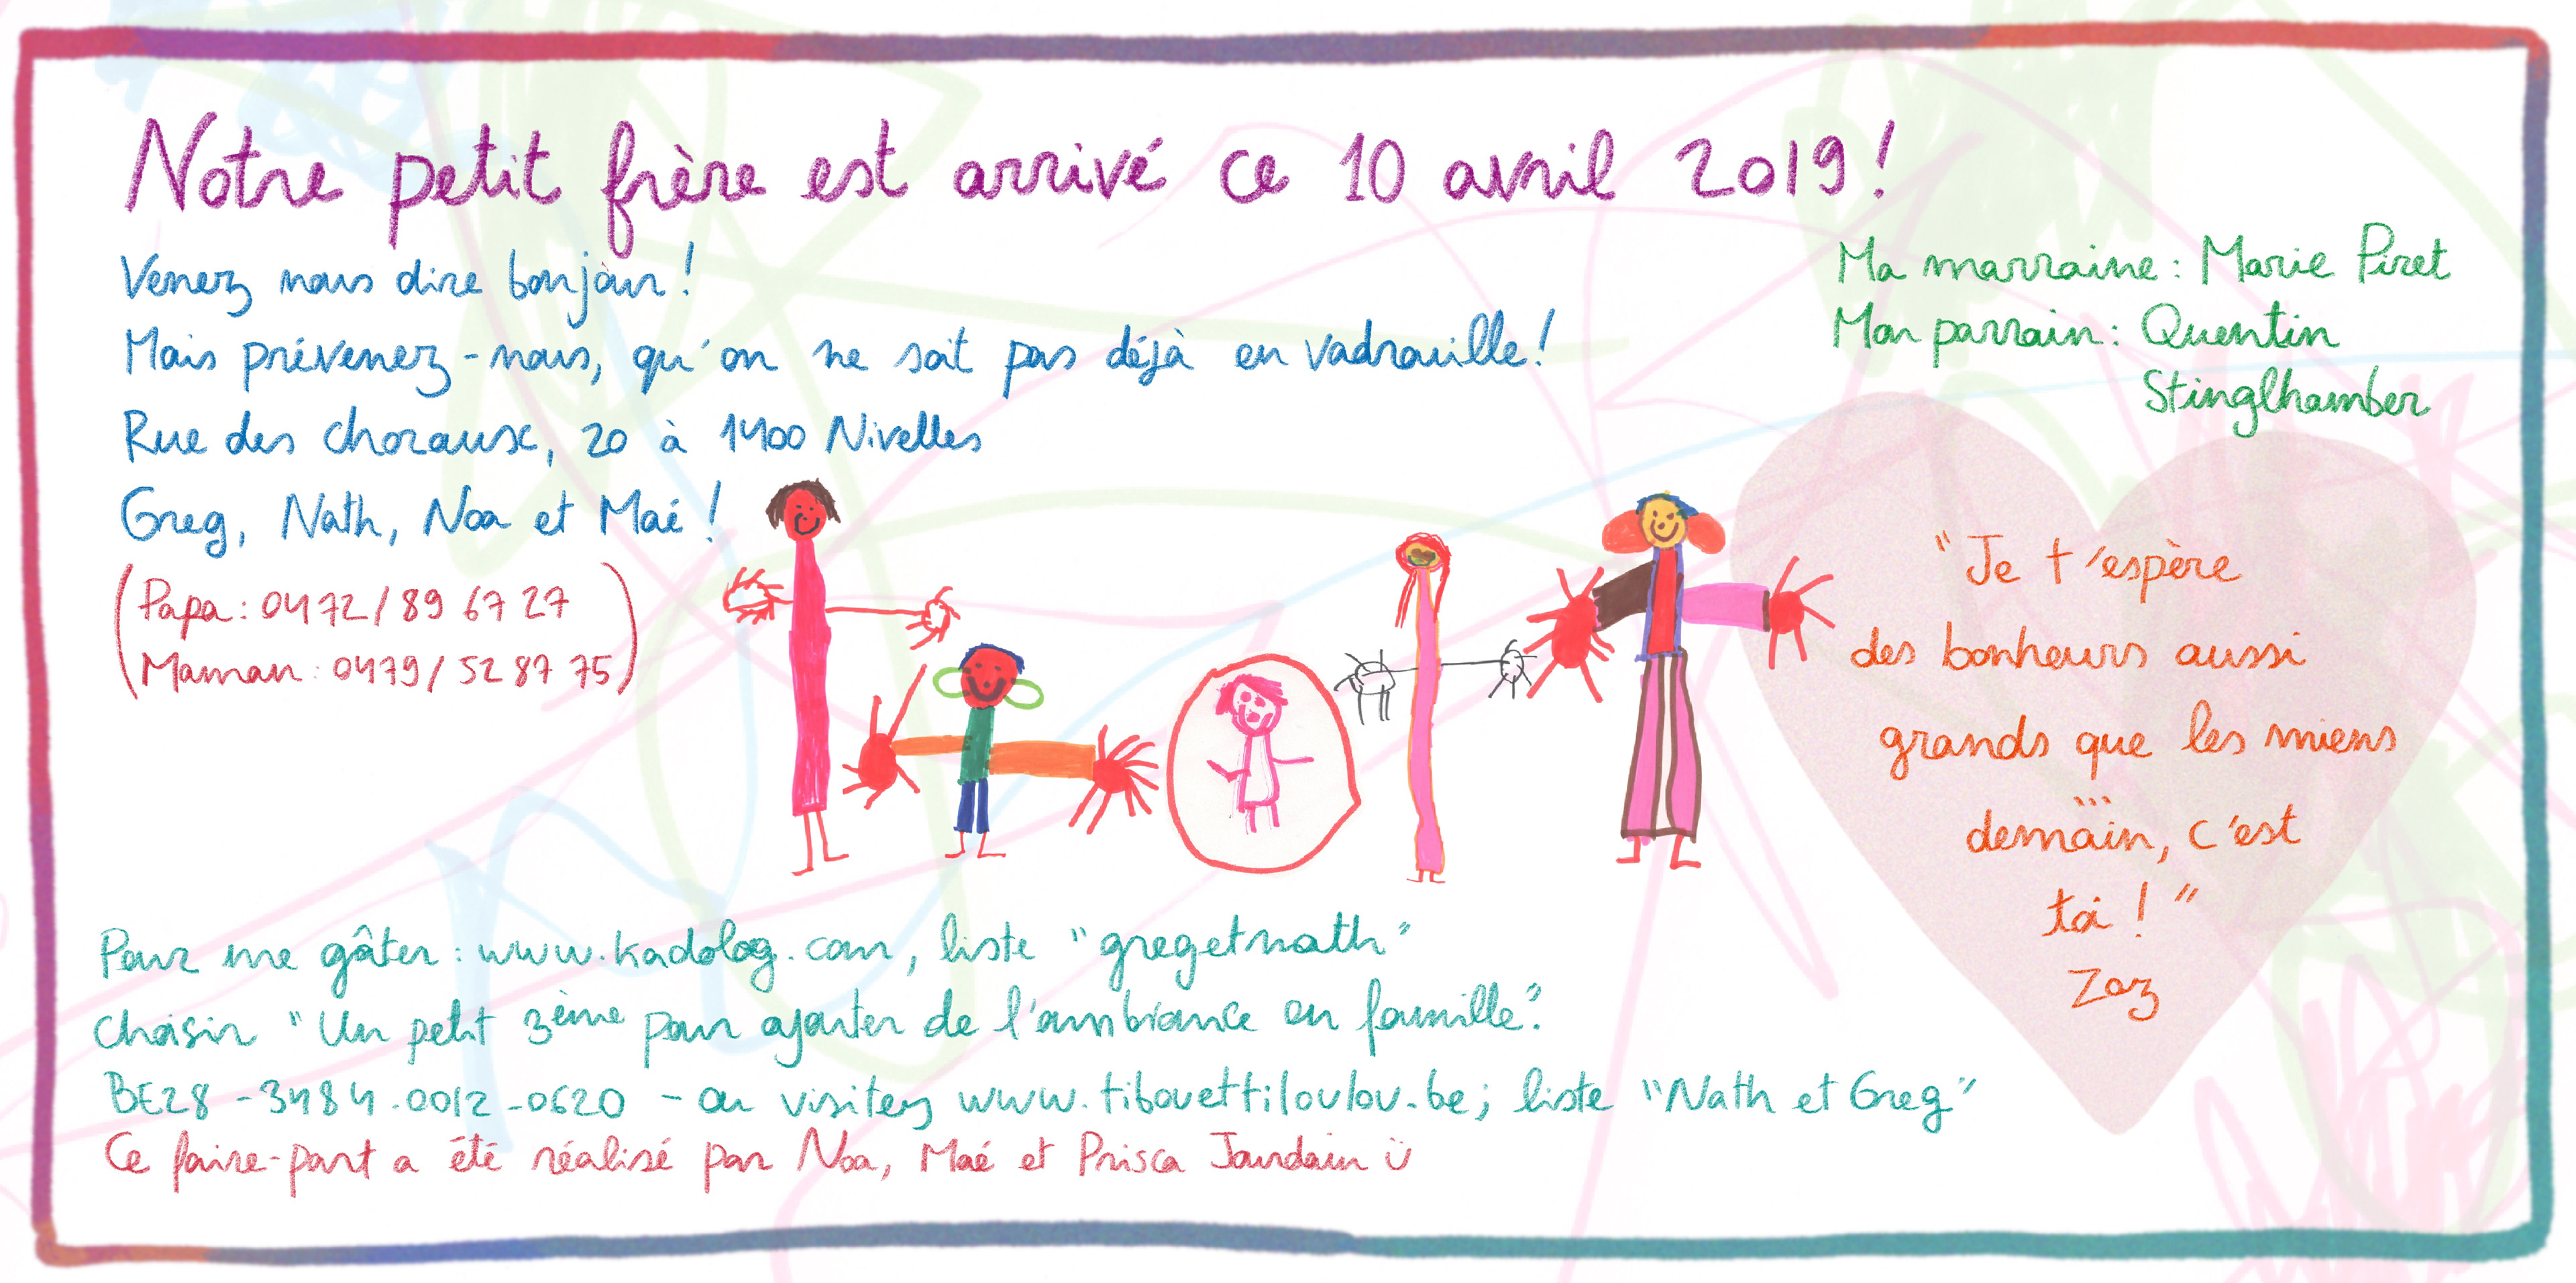 Notre petit frère est arrivé ce 10 avril 2019 !
Venez nous dire bonjour !
Mais prévenez-nous, qu'on ne soit pas déjà en vadrouille !
Rue des choraux, 20 à 1400 Nivelles
Greg, Nath, Noa et Maé !
(Papa : 0472/89 67 27
Maman : 0479/52 87 75)
Ma marraine : Marie Piret
Mon parrain : Quentin
Stinglhamber
"Je t'espère
des bonheurs aussi
grands que les miens
...
demain, c'est
toi ! "
Zaz
Pour me gâter : www.kadolog.com, liste "gregetnath"
Choisir "Un petit 3ème pour ajouter de l'ambiance en famille".
BE28-3484-0012-0620 - ou visitez www.tibouettiloulou.be; liste "Nath et Greg"
Ce faire-part a été réalisé par Noa, Maé et Prisca Jourdain ü